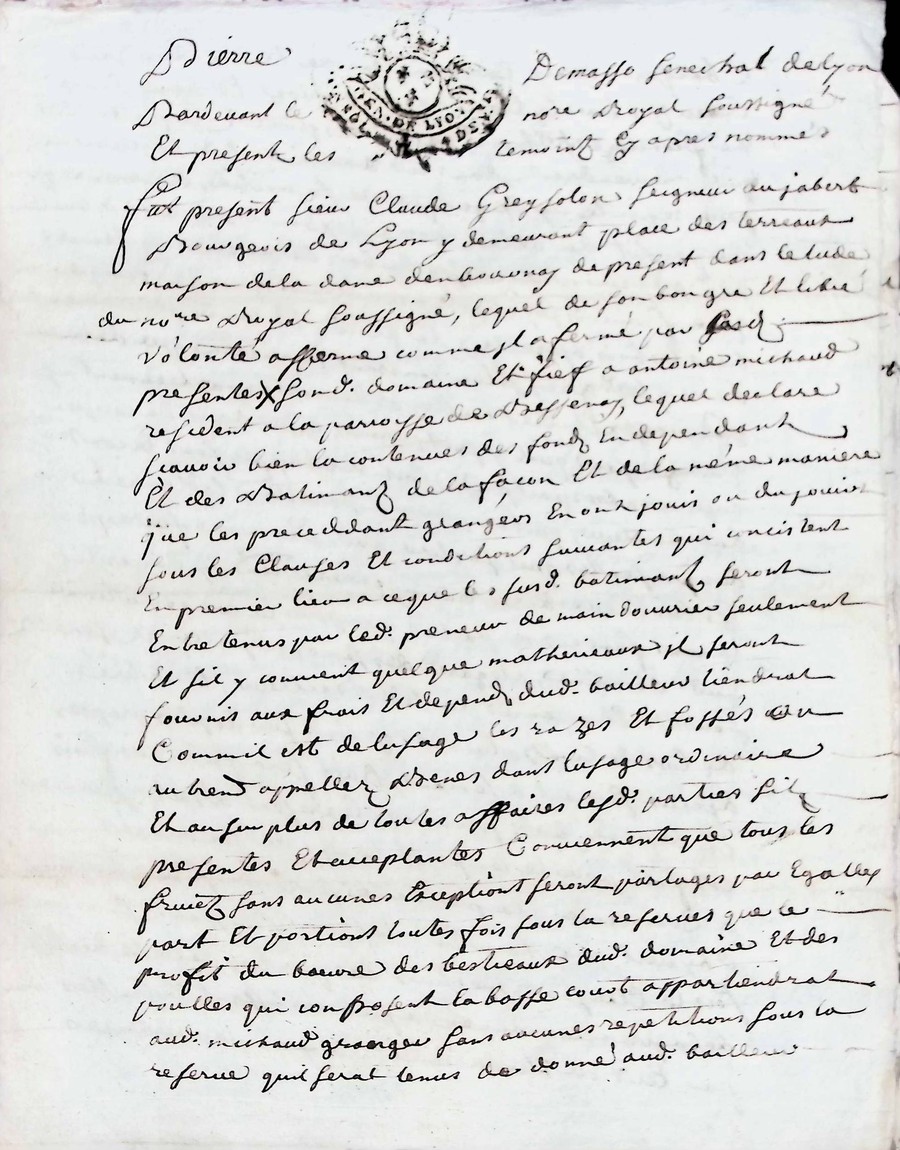 Pierre Demasso Senechal de Lyon
Pardevant le nore Royal soussigné
GEN. DE LYON
Et present les temointz Cy apres nommés
Fut present sieur Claude Greysolon seigneur du jabert
Bourgeois de Lyon y demeurant place des terreaux
maison de la dame de present dans letude
du nore Royal soussigné, lequel de son bon gre Et libre
volonté afferme comme jl a fermé par
presentes sond. domaine Et fief a antoine michaud
resident a la parroisse de Bessenay, lequel declare
scavoir bien la contenues des fondz En dependant
Et des Batimantz de la façon Et de la méme maniere
que les preceddant grangérs En ont jouis ou du jouir
sous les Clauses Et conditions suivantes qui concistent
En premier lieu a ceque les susd. batimantz seront
Entretenus par led. preneur de main douvrier seulement
Et sil y convient quelque matherieaux jl seront
fournis aux frais Et depend dud. bailleur tiendrat
Commil est de lusage les razes Et fossés
appellez dans lusage ordinaire
Et au surplus de toutes affaires lesd. parties
presentes Et acceptantes Conviennent que tous les
fruitz sans aucunes Exceptiont seront partages par Egalles
part Et portiont toutes fois sous la reserves que le
profit du baeure des bestieaux dud. domaine Et des
poulles qui composent la basse court appartiendrat
aud. michaud granger sans aucunes repetitions sous la
reserve quil serat tenus de donné aud. bailleur